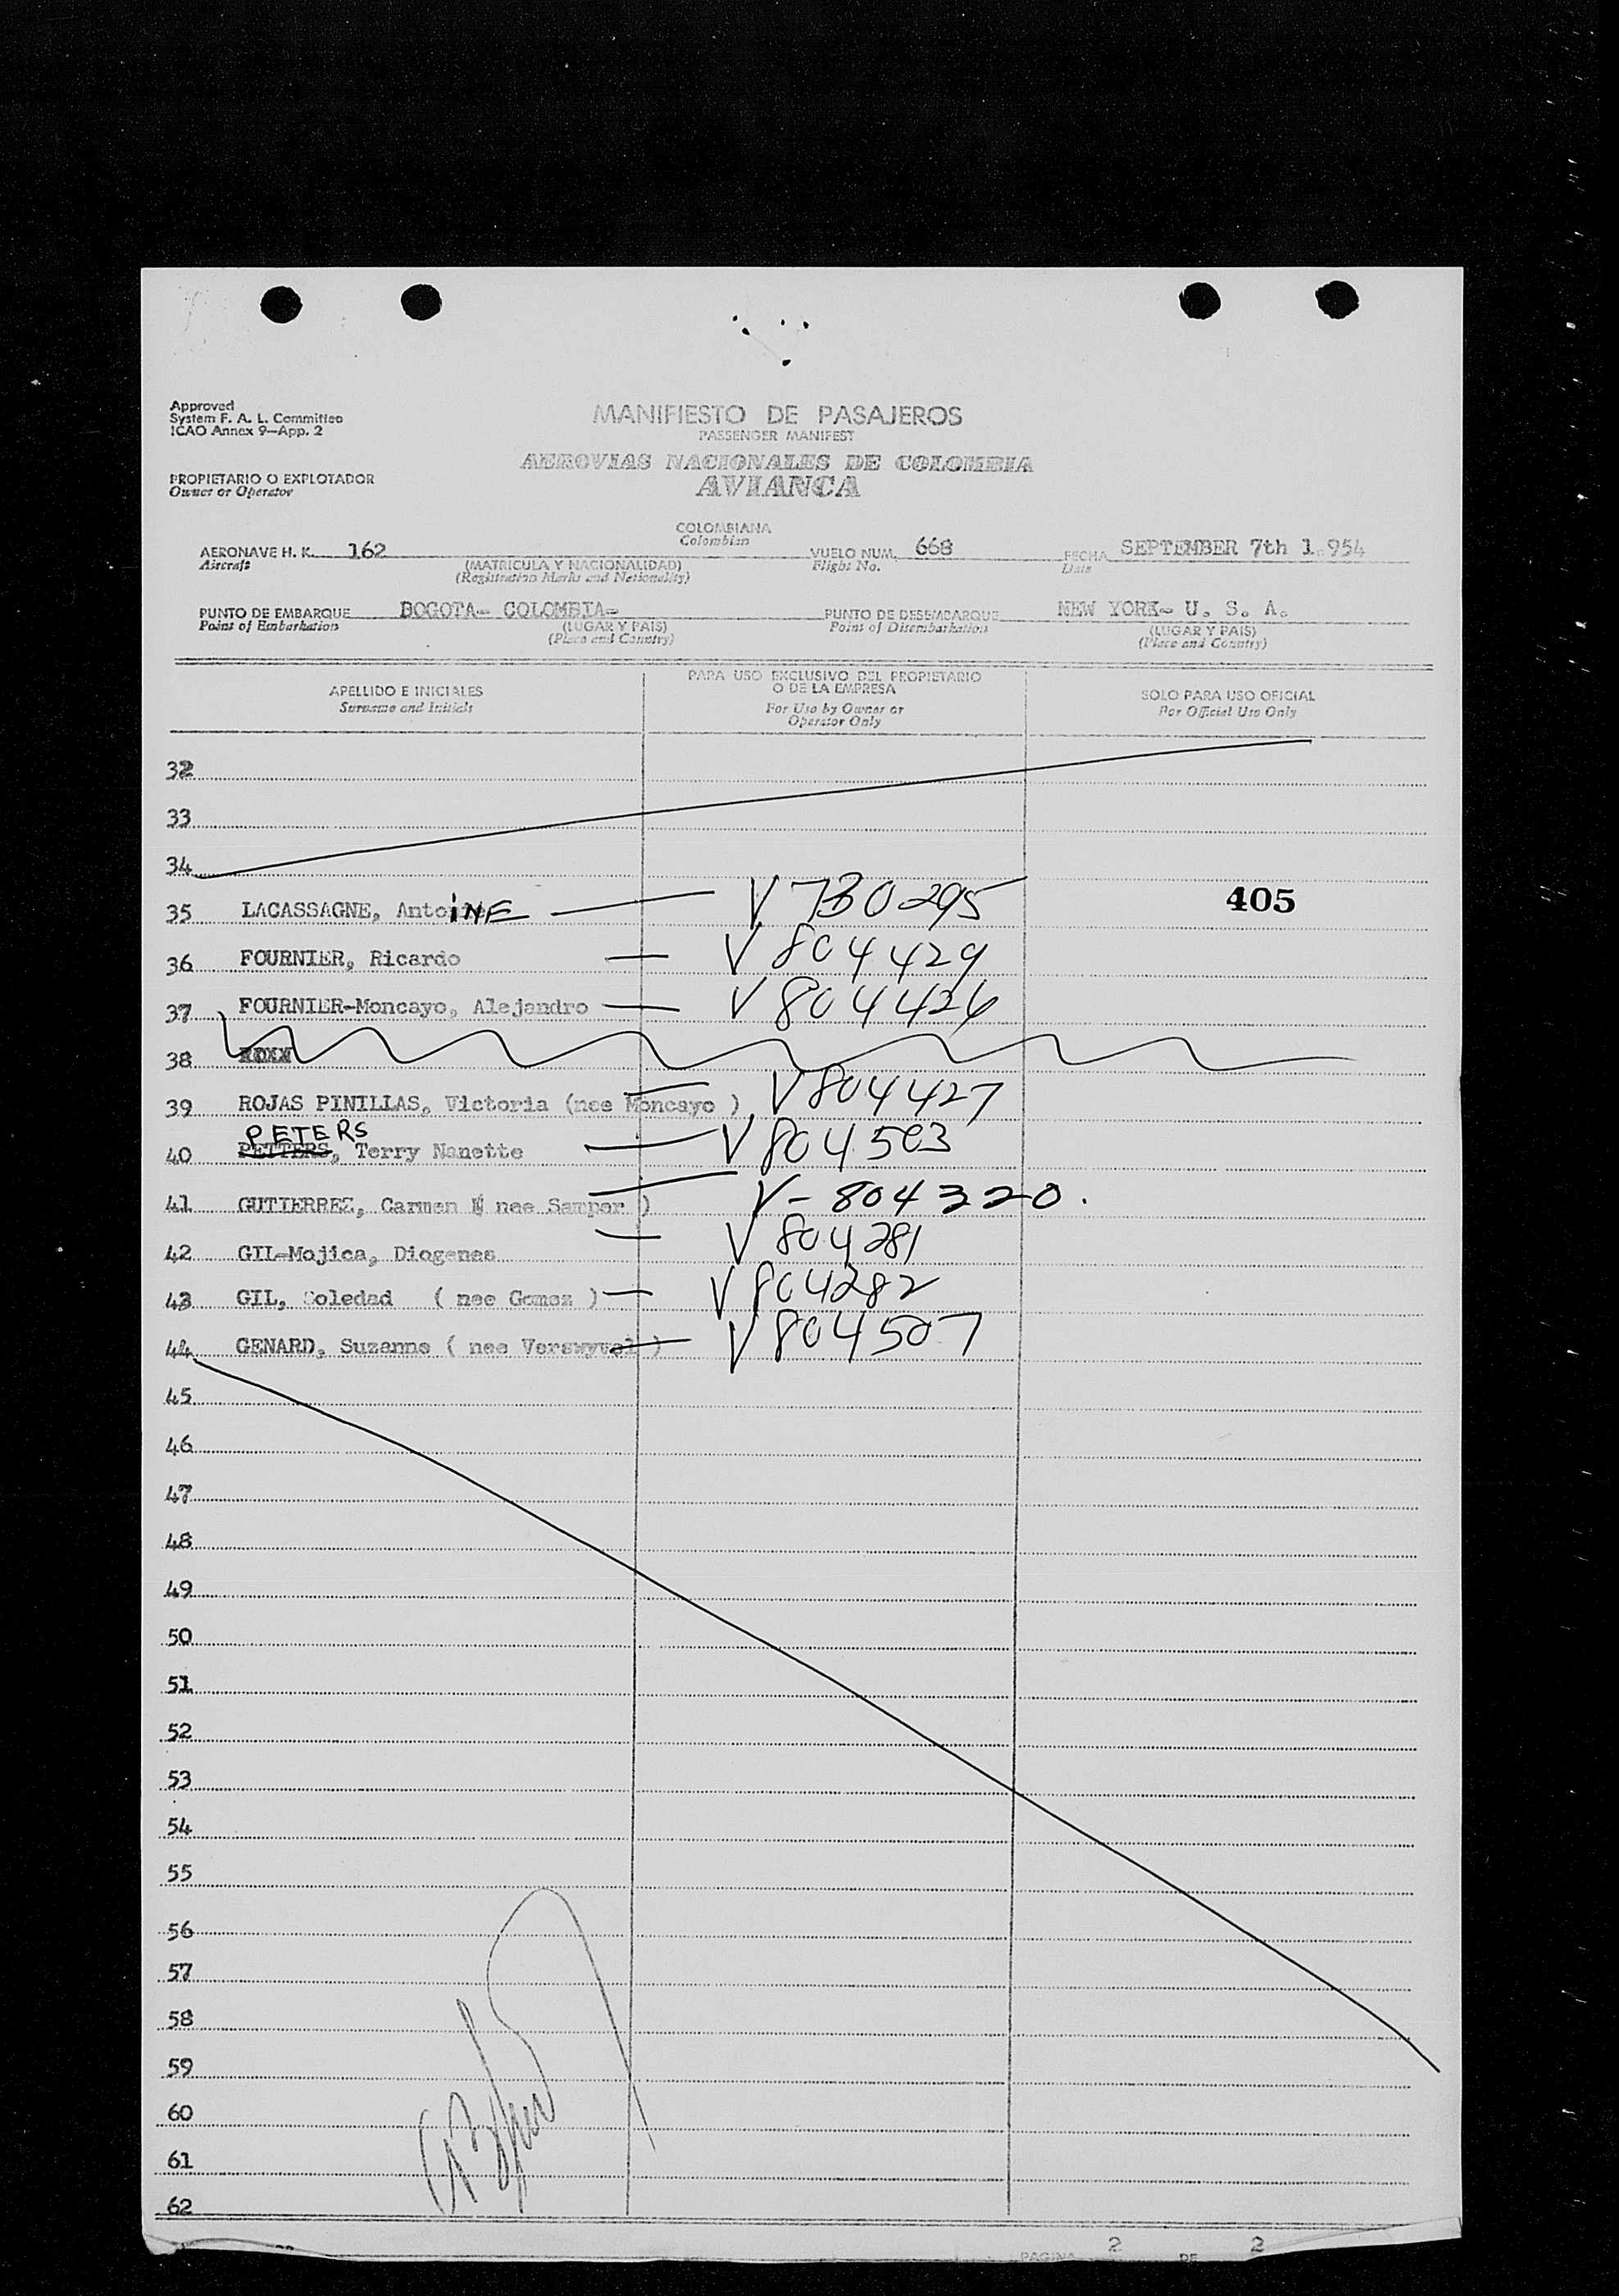 Approved
System F. A. L. Committee
ICAO Annex 9—App. 2
MANIFIESTO DE PASAJEROS
PASSENGER MANIFEST
AEROVIAS NACIONALES DE COLOMBIA
AVIANCA
PROPIETARIO O EXPLOTADOR
Owner or Operator
COLOMBIANA
Colombian
AERONAVE H. K. 162 VUELO NUM. 668 FECHA SEPTEMBER 7th 1.954
Aircraft (MATRICULA Y NACIONALIDAD) Flight No. Date
(Registration Marks and Nationality)
PUNTO DE EMBARQUE BOGOTA- COLOMBIA- PUNTO DE DESEMBARQUE NEW YORK- U. S. A.
Point of Embarkation (LUGAR Y PAIS) Point of Disembarkation (LUGAR Y PAIS)
(Place and Country) (Place and Country)
APELLIDO E INICIALES PARA USO EXCLUSIVO DEL PROPIETARIO O DE LA EMPRESA SOLO PARA USO OFICIAL
Surname and Initials For Use by Owner or Operator Only For Official Use Only
32
33
34
35 LACASSAGNE, AntoiNE — V 730295 405
36 FOURNIER, Ricardo — V 804429
37 FOURNIER-Moncayo, Alejandro — V 804426
38
39 ROJAS PINILLAS, Victoria (nee Moncayo ) V 804427
PETERS
40 PETTERS, Terry Nanette — V 804503
41 GUTIERREZ, Carmen ( nee Samper ) V - 804320.
42 GIL-Mojica, Diogenes — V 804281
43 GIL, Soledad ( nee Gomez ) — V 804282
44 GENARD, Suzanne ( nee ) V 804507
45
46
47
48
49
50
51
52
53
54
55
56
57
58
59
60
61
62
PAGINA 2 DE 2